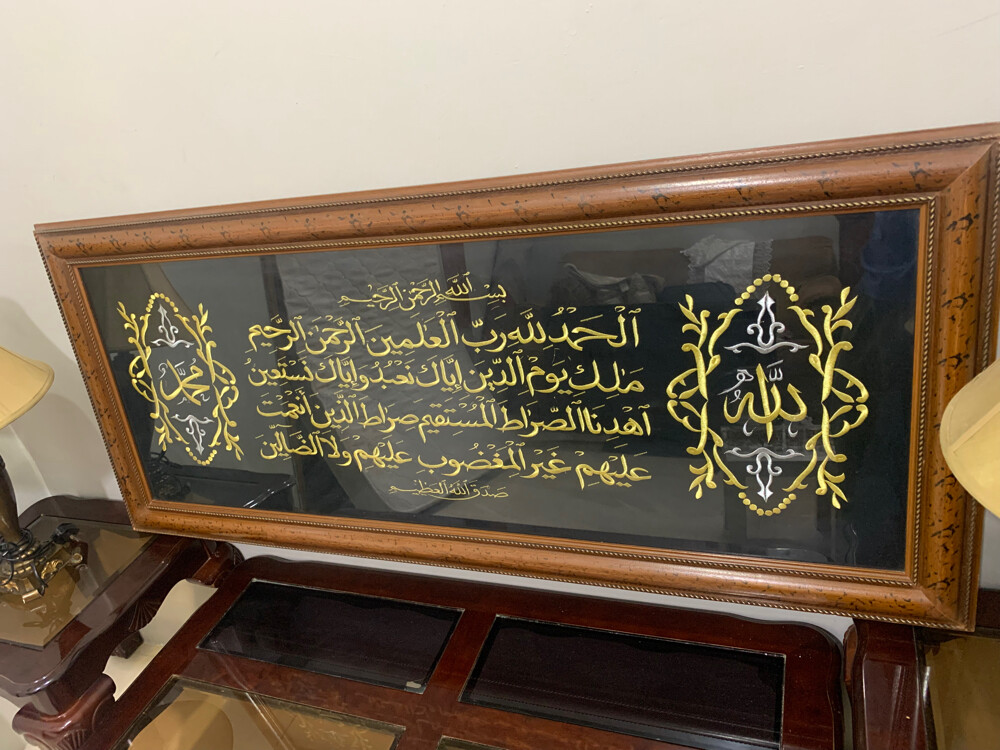 الله جل جلاله
بسم الله الرحمن الرحيم
ٱلۡحَمۡدُ لِلَّهِ رَبِّ ٱلۡعَٰلَمِينَ ٱلرَّحۡمَٰنِ ٱلرَّحِيمِ
مَٰلِكِ يَوۡمِ ٱلدِّينِ إِيَّاكَ نَعۡبُدُ وَإِيَّاكَ نَسۡتَعِينُ
ٱهۡدِنَا ٱلصِّرَٰطَ ٱلۡمُسۡتَقِيمَ صِرَٰطَ ٱلَّذِينَ أَنۡعَمۡتَ
عَلَيۡهِمۡ غَيۡرِ ٱلۡمَغۡضُوبِ عَلَيۡهِمۡ وَلَا ٱلضَّآلِّينَ
صدق الله العظيم
محمد